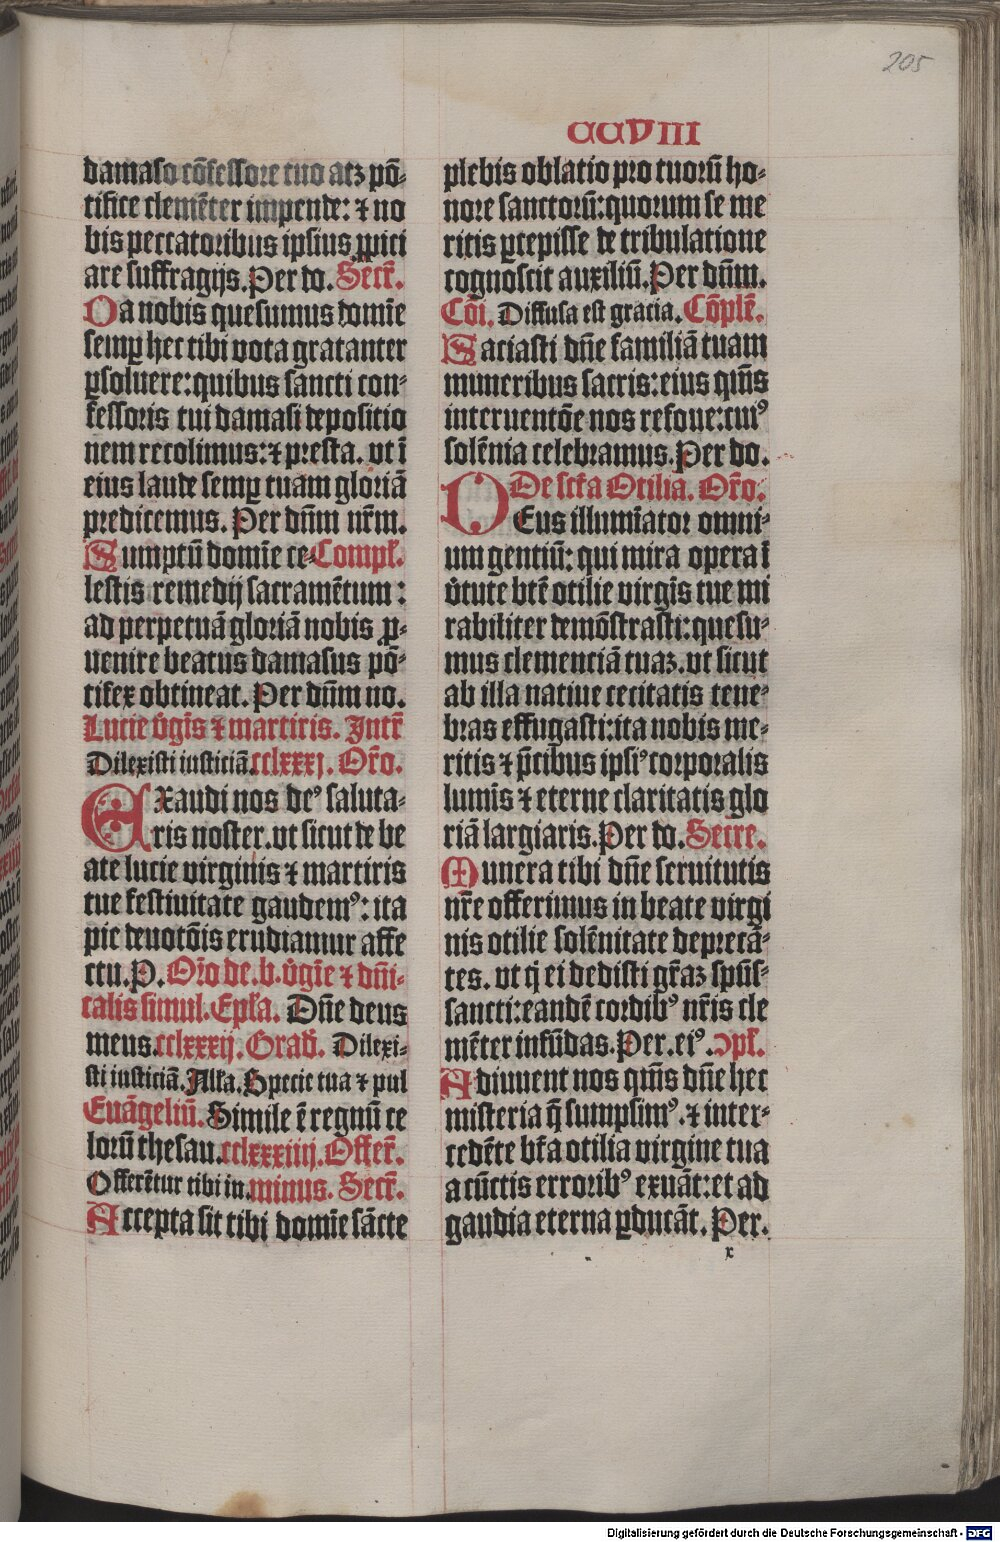 205
CCVIII
damaso cōfessore tuo atꝫ pō-
tifice clemēter impende: ⁊ no
bis peccatoribus ipsius ꝓpici
are suffragijs. Per do. Secr̄.
Da nobis quesumus domīe
semꝑ hec tibi vota gratanter
ꝑsoluere: quibus sancti con-
fessoris tui damasi depositio
nem recolimus: ⁊ presta. vt ī
eius laude semꝑ tuam gloriā
predicemus. Per dn̄m nr̄m.
Sumptū domīe ce- Compl̄.
lestis remedij sacramētum:
ad perpetuā gloriā nobis ꝓ-
uenire beatus damasus pō-
tifex obtineat. Per dn̄m no.
Lucie v̄gīs ⁊ martiris. Intr̄
Dilexisti iusticiā. cclxxxj. Or̄o.
Exaudi nos deꝰ saluta-
ris noster. vt sicut de be
ate lucie virginis ⁊ martiris
tue festiuitate gaudemꝰ: ita
pie deuotōis erudiamur affe
ctu. P. Or̄o de. b. v̄gīe ⁊ dn̄i-
calis simul. Epl̄a. Dn̄e deus
meus. cclxxxij. Grad̄. Dilexi-
sti iusticiā. All̄a. Specie tua ⁊ pul
Euāgeliū. Simile ē regnū ce
lorū thesau. cclxxxiiij. Offer̄.
Offerētur tibi in. minus. Secr̄.
Accepta sit tibi domīe sācte
plebis oblatio pro tuorū ho-
nore sanctorū: quorum se me
ritis ꝑcepisse de tribulatione
cognoscit auxiliū. Per dn̄m.
Cōi. Diffusa est gracia. Cōplē.
Saciasti dn̄e familiā tuam
muneribus sacris: eius qm̄s
interuentōe nos refoue: cuiꝰ
solēnia celebramus. Per do.
De sct̄a Otilia. Or̄o.
DEus illumīator omni-
um gentiū: qui mira opera ī
v̄tute bt̄e otilie virgīs tue mi
rabiliter demōstrasti: quesu-
mus clemenciā tuaꝫ. vt sicut
ab illa natiue cecitatis tene-
bras effugasti: ita nobis me-
ritis ⁊ p̄cibus ipsiꝰ corporalis
lumīs ⁊ eterne claritatis glo
riā largiaris. Per do. Secre.
Munera tibi dn̄e seruitutis
nr̄e offerimus in beate virgi
nis otilie solēnitate depretā-
tes. vt q̄ ei dedisti gr̄aꝫ spūs-
sancti: eandē cordibꝰ nr̄is cle
mēter infūdas. Per. eiꝰ. ꝯpl̄.
Adiuuent nos qm̄s dn̄e hec
misteria q̄ sumpsimꝰ. ⁊ inter-
cedēte bt̄a otilia virgine tua
a cūctis erroribꝰ exuāt: et ad
gaudia eterna ꝑducāt. Per.
x
Digitalisierung gefördert durch die Deutsche Forschungsgemeinschaft - DFG